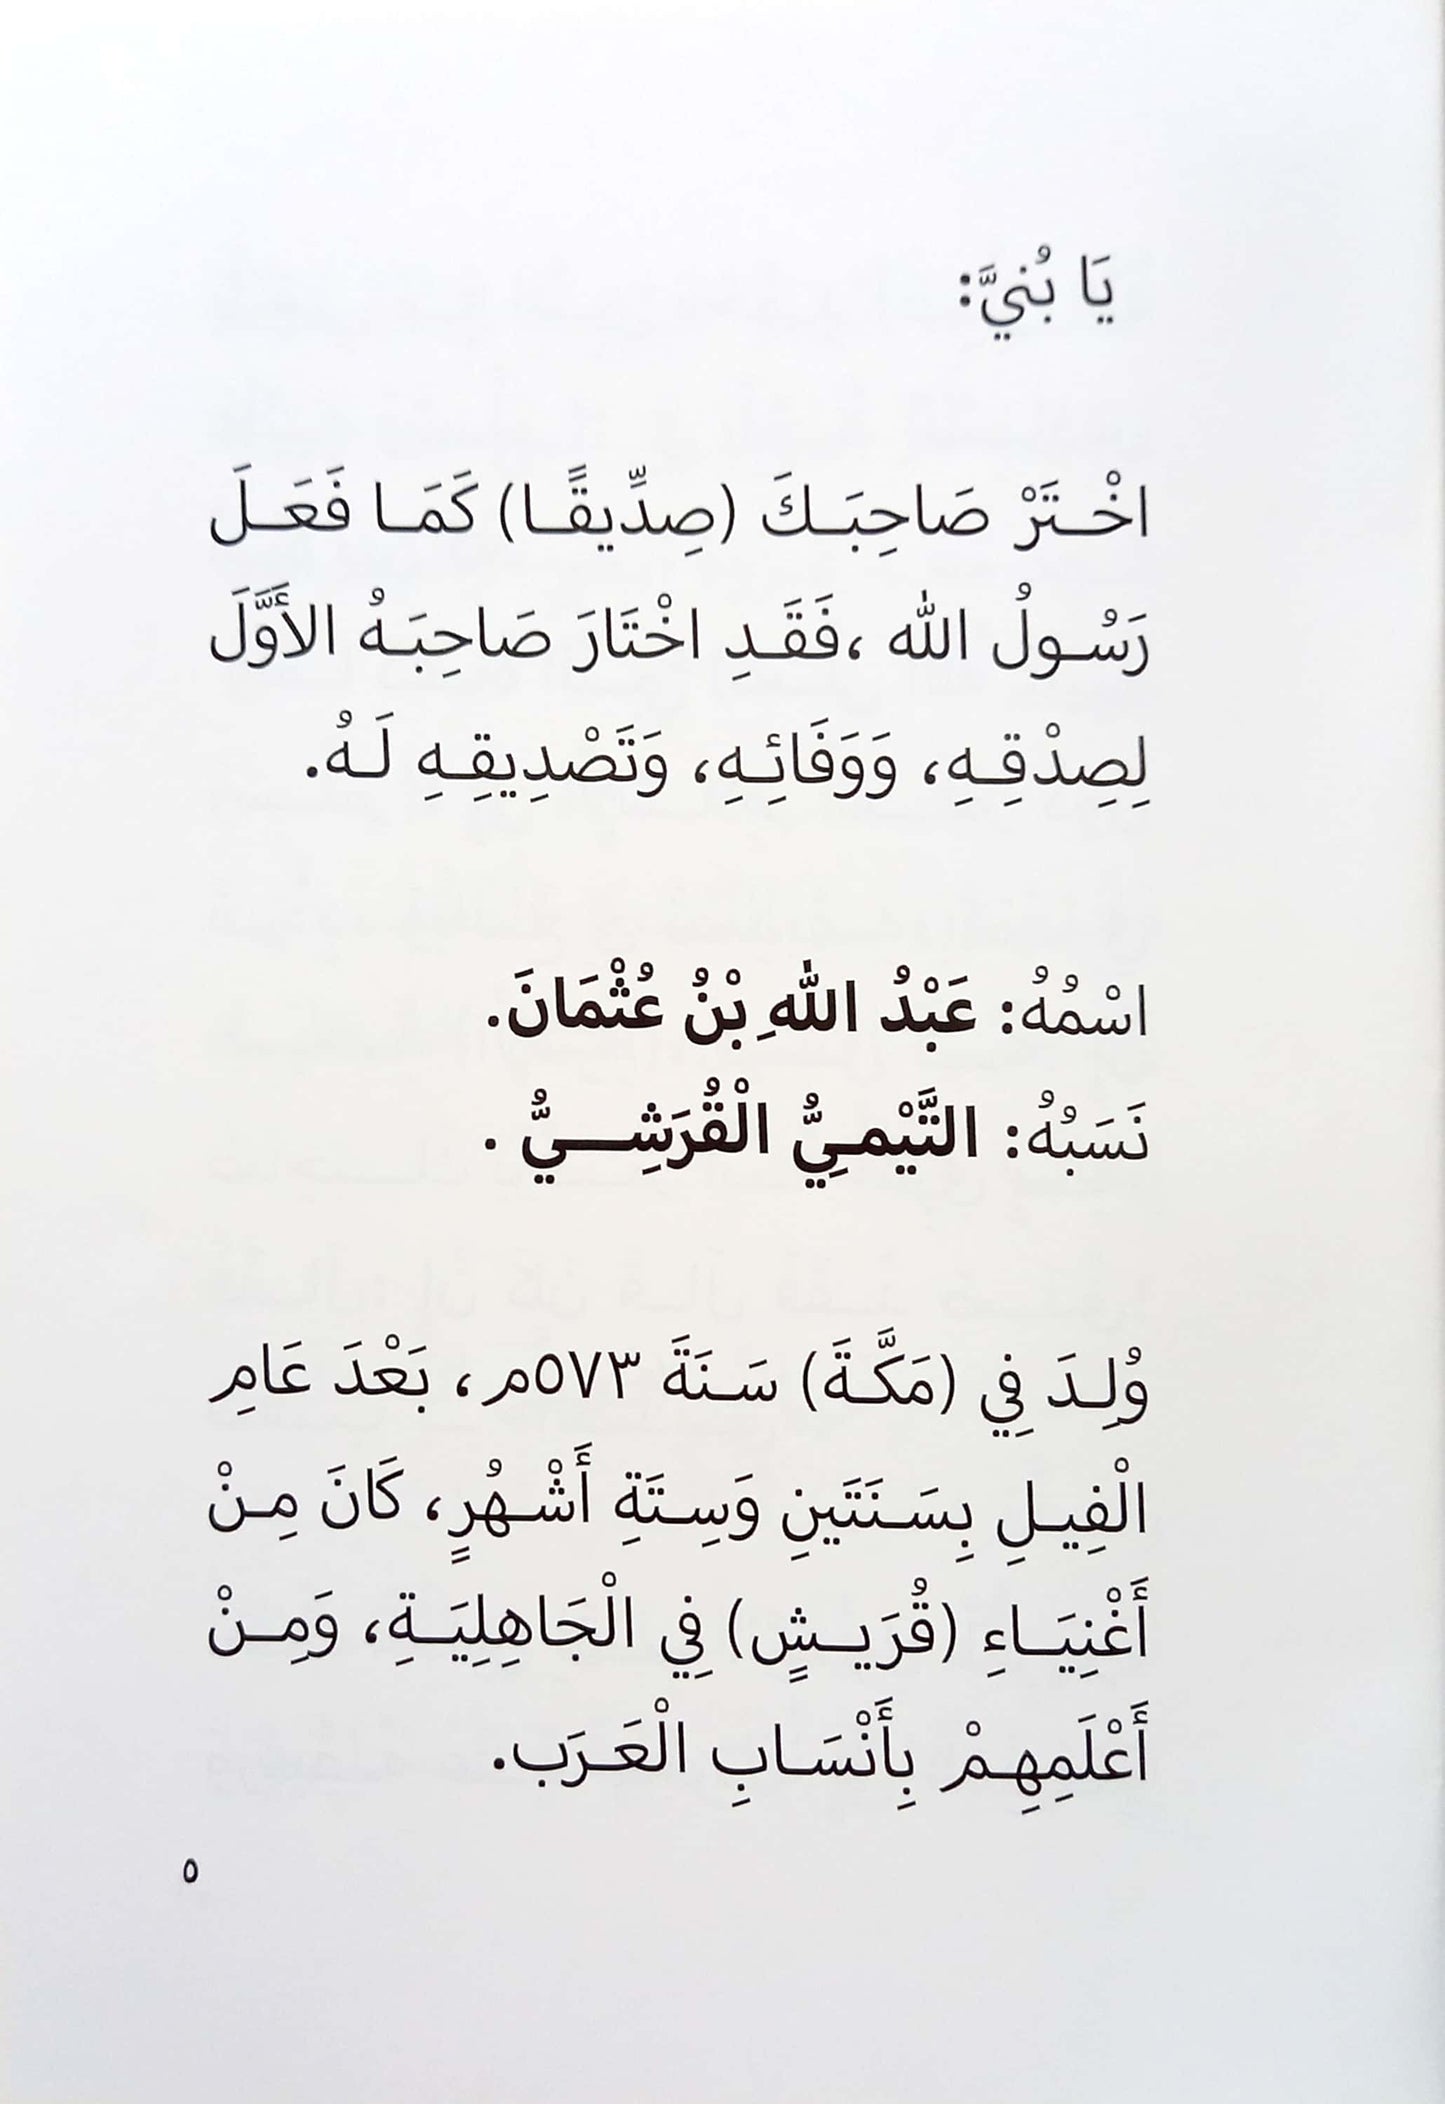 يَا بُنيَّ:
اخْتَرْ صَاحِبَكَ (صِدِّيقًا) كَمَا فَعَلَ
رَسُولُ الله ،فَقَدِ اخْتَارَ صَاحِبَهُ الأَوَّلَ
لِصِدْقِهِ، وَوَفَائِهِ، وَتَصْدِيقِهِ لَهُ.
اسْمُهُ: عَبْدُ اللهِ بْنُ عُثْمَانَ.
نَسَبُهُ: التَّيْمِيُّ الْقُرَشِيُّ .
وُلِدَ فِي (مَكَّةَ) سَنَةَ ٥٧٣م، بَعْدَ عَامِ
الْفِيلِ بِسَنَتَينِ وَسِتَةِ أَشْهُرٍ، كَانَ مِنْ
أَغْنِيَاءِ (قُرَيشٍ) فِي الْجَاهِلِيَةِ، وَمِنْ
أَعْلَمِهِمْ بِأَنْسَابِ الْعَرَب.
٥